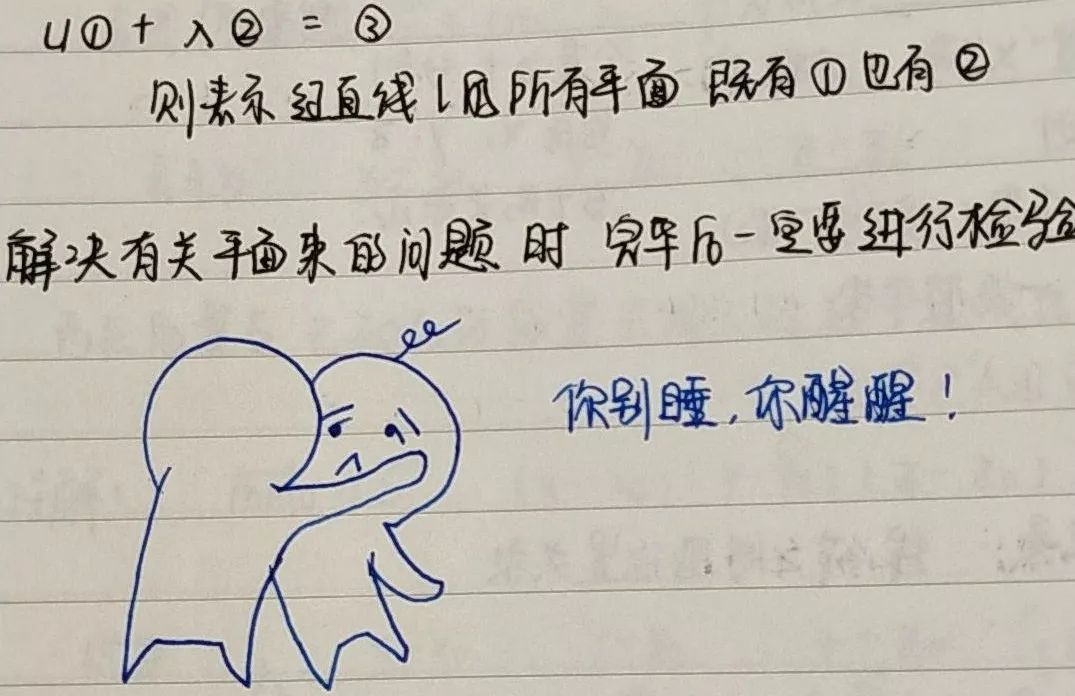 u①+λ②=③
则表示过直线l的所有平面 既有①也有②
解决有关平面束的问题时 完毕后一定要进行检验
你别睡,你醒醒!